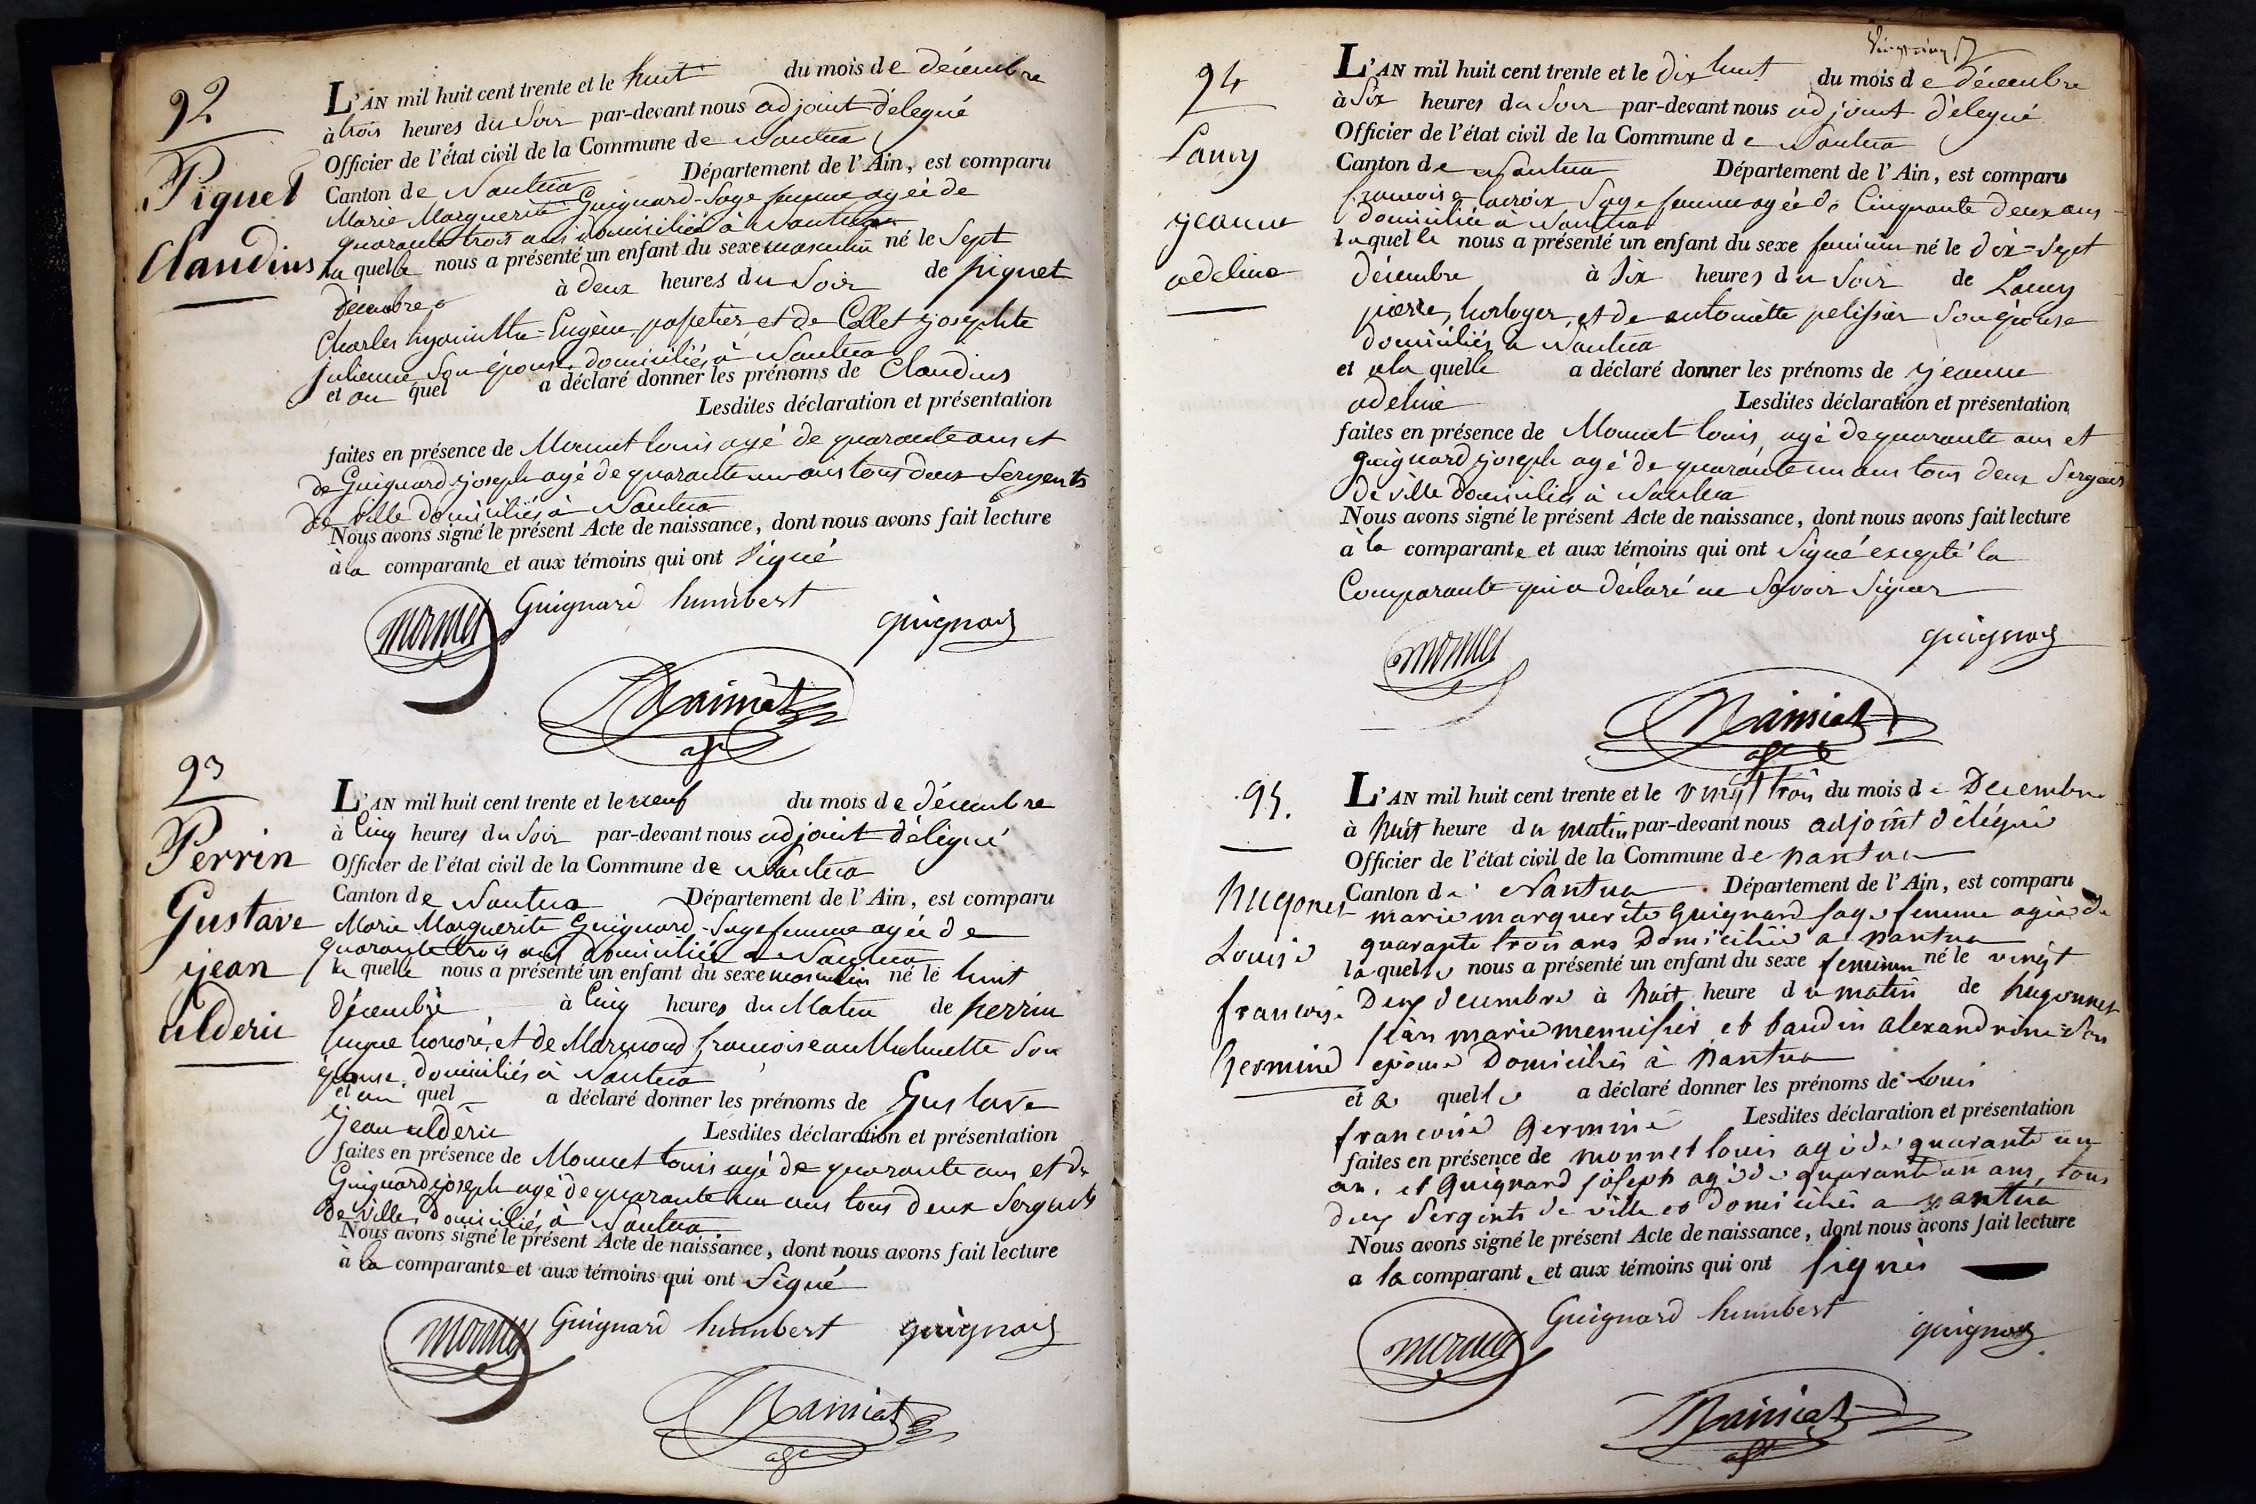 92
Piguet
Claudius
L'AN mil huit cent trente et le huit du mois de décembre
à trois heures du Soir par-devant nous adjoint délegué
Officier de l'état civil de la Commune de Nantua
Canton de Nantua Département de l'Ain, est comparu
Marie Marguerite Guignard Sage femme agée de
quarante trois ans domiciliée à Nantua
la quelle nous a présenté un enfant du sexe masculin né le Sept
décembre à deux heures du Soir de piguet
Charles hyacinthe Eugène, papetier et de Collet josephte
julienne Son épouse domiciliés à Nantua
et au quel a déclaré donner les prénoms de Claudius
Lesdites déclaration et présentation
faites en présence de Monnet louis agé de quarante ans et
de Guignard joseph agé de quarante un ans tous deux Sergents
de ville domiciliés à Nantua
Nous avons signé le présent Acte de naissance, dont nous avons fait lecture
à la comparante et aux témoins qui ont Signé
monnet Guignard humbert guignard
93
Perrin
Gustave
jean
ulderic
L'AN mil huit cent trente et le neuf du mois de décembre
à Cinq heures du Soir par-devant nous adjoint délegué
Officier de l'état civil de la Commune de Nantua
Canton de Nantua Département de l'Ain, est comparu
Marie Marguerite Guignard Sage femme agée de
quarante trois ans domiciliée à Nantua
la quelle nous a présenté un enfant du sexe masculin né le huit
décembre à Cinq heures du Matin de perrin
honoré, et de francoise Son
épouse domiciliés à Nantua
et au quel a déclaré donner les prénoms de Gustave
jean ulderic Lesdites déclaration et présentation
faites en présence de Monnet louis agé de quarante ans et de
Guignard joseph agé de quarante un ans tous deux Sergents
de ville domiciliés à Nantua
Nous avons signé le présent Acte de naissance, dont nous avons fait lecture
à la comparante et aux témoins qui ont Signé
monnet Guignard humbert guignard
94
Lancy
jeanne
adeline
L'AN mil huit cent trente et le dix huit du mois de décembre
à Six heures du Soir par-devant nous adjoint délegué
Officier de l'état civil de la Commune de Nantua
Canton de Nantua Département de l'Ain, est comparu
francoise lacroix Sage femme agée de Cinquante deux ans
domiciliée à Nantua
laquelle nous a présenté un enfant du sexe feminin né le dix=Sept
décembre à Six heures du Soir de Lancy
pierre, horloger, et de antoinette pelissier Son épouse
domiciliés à Nantua
et a la quelle a déclaré donner les prénoms de jeanne
adeline Lesdites déclaration et présentation
faites en présence de Monnet louis agé de quarante ans et
guignard joseph agé de quarante un ans tous deux Sergents
de ville domiciliés à Nantua
Nous avons signé le présent Acte de naissance, dont nous avons fait lecture
a la comparante et aux témoins qui ont Signé excepté la
Comparante qui a déclaré ne Savoir Signer
monnet guignard
95.
hugonet
Louise
francoise
hermine
L'AN mil huit cent trente et le vingt trois du mois de Decembre
à huit heure du matin par-devant nous adjoint délégué
Officier de l'état civil de la Commune de nantua
Canton de Nantua Département de l'Ain, est comparu
marie marguerite Guignard sage femme agée de
quarante trois ans Domiciliée a nantua
laquelle nous a présenté un enfant du sexe feminin né le vingt
Deux decembre à huit heure du matin de hugonnet
jean marie menuisier et baudin alexandrine Son
epouse Domiciliés à nantua
et a quelle a déclaré donner les prénoms de Louise
francoise hermine Lesdites déclaration et présentation
faites en présence de monnet louis agé de quarante un
an, et Guignard joseph agé de quarante un ans, tous
deux Sergents de ville et domiciliés a nantua
Nous avons signé le présent Acte de naissance, dont nous avons fait lecture
a la comparante et aux témoins qui ont signés
monnet Guignard humbert guignard